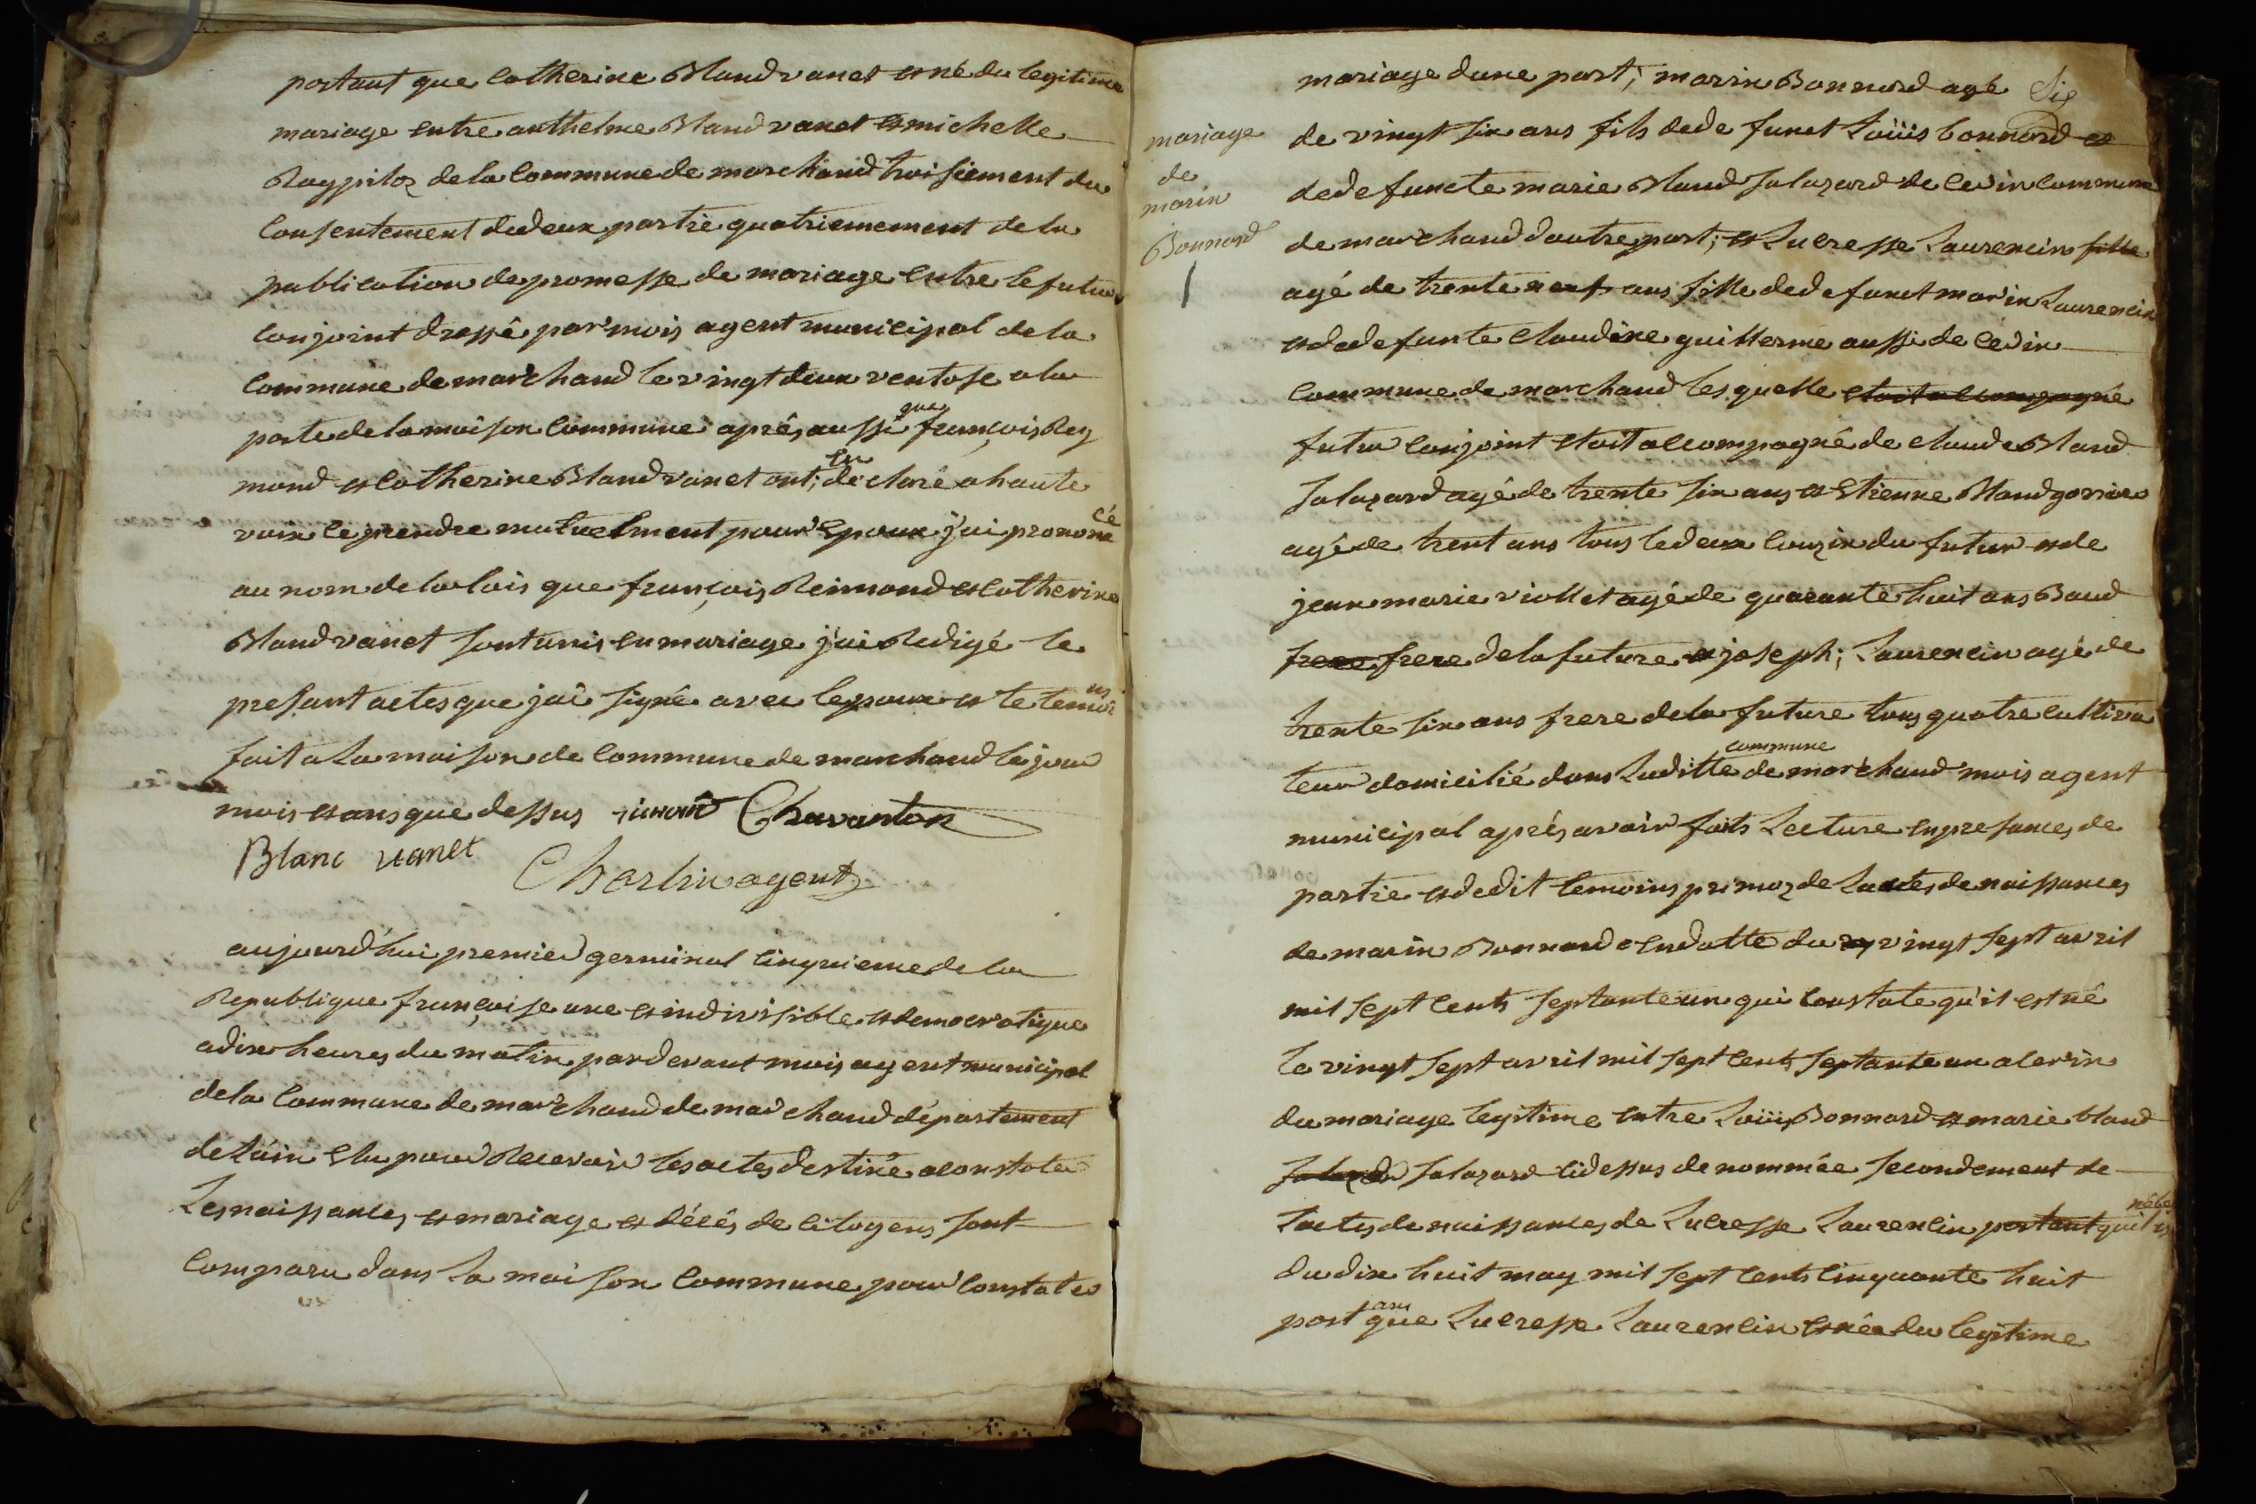 portant que Catherine Bland vanet est né du legitime
mariage entre anthelme Bland vanet et michelle
de la Commune de marchand troisiement du
Consentement de deux partie quatriemement de la
publication de promesse de mariage entre le futur
Conjoint dressé par mois agent municipal de la
Commune de marchand le vingt deux ventose a la
porte de la maison Commune aprés aussi que françois Rey
mond et Catherine Bland vanet ont eu declaré a haute
voix ce prendre mutuelment pour Epoux j'ai prononcé
au nom de la lois que françois Reimond et Catherine
Bland vanet sont unis en mariage j'ai Redigé le
presant actes que jai signé avec lepoux et le temoins
fait a La maison de Commune de marchand les jour
mois et ans que dessus rimond Chavanton
Blanc vanet
Charlin agent
aujourd'hui premier germinal Cinquieme de la
Republique françoise une et indivisible et democratique
a dix heures du matin pardevant mois agent municipal
de la Commune de marchand de marchand département
de Lain Elu pour Recevoir les actes destiné a constater
Les naissances et mariage et décés de Citogens sont
Comparu dans La maison Commune pour Constater
Six
mariage
de
marin
Bonnard
mariage dune part; marin Bonnard agé
de vingt six ans fils de defunct Loüis bonnard et
de defuncte marie Bland Jalazard de Cevin Commune
de marchand dautre part; et Lucresse Laurencin fille
agé de trente neuf ans fille de defunct marin Laurencin
et de defunte Claudine guillerme aussi de Cevin
Commune de marchand lesquelle etoit accompagné
futur Conjoint etoit accompagné de Claude Bland
Jalazard agé de trente six ans et Etienne Bland gorrier
agé de trent ans tous le deux Couzin du futur et de
jean marie viollet agé de quarante huit ans Baud
frere frere de la future et joseph; Laurencin agé de
trente six ans frere de la future tous quatre cultiva
teur domicilié dans Laditte commune de marchand mois agent
municipal aprés avoir faits Lecture en presances de
partie et dedit temoins primoz de Lactes de naissances
de marin Bonnard en datte du vingt sept avril
mil sept Cents septante un qui Constate qu'il est né
Le vingt sept avril mil sept Cents septante un a Cevin
du mariage legitime entre Loüis Bonnard et marie bland
Jalazard Cidessus denommée secondement de
Lactes de naissances de Lucresse Laurencin portant quil
du dix huit may mil sept Cents Cinquante huit
portant que Lucresse Laurencin est née du legitime